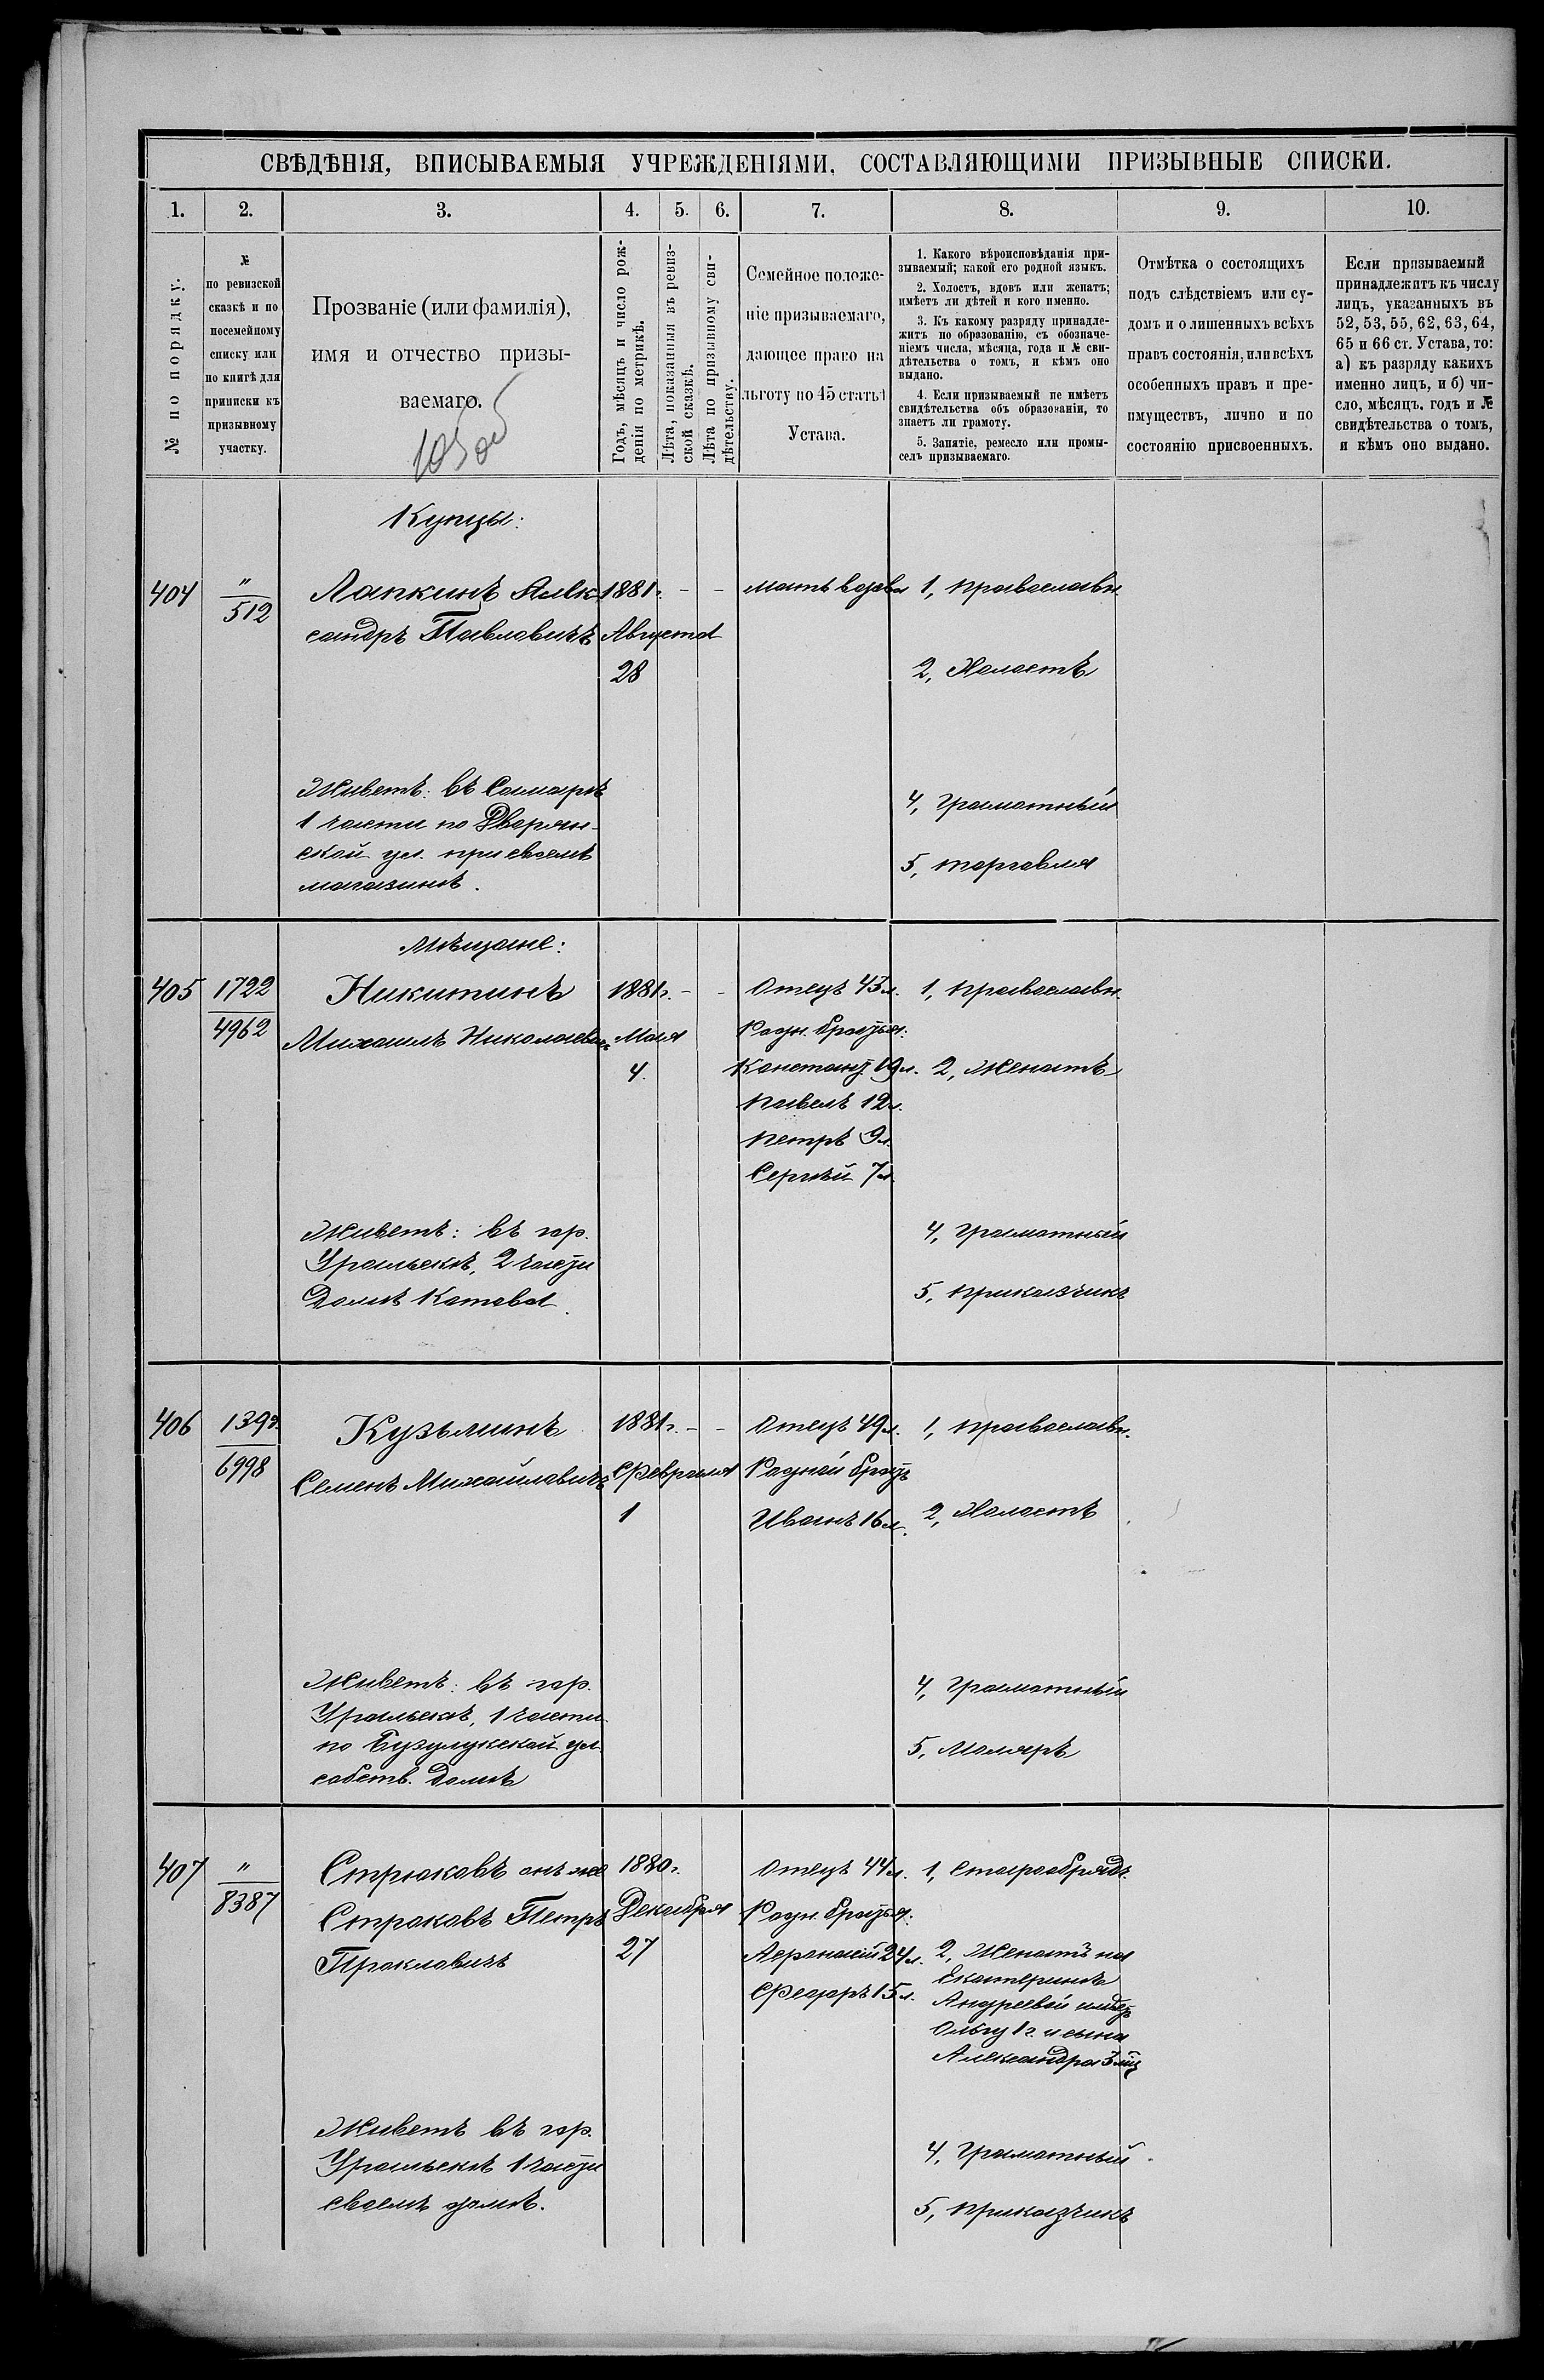 СВѢДѢНІЯ, ВПИСЫВАЕМЫЯ УЧРЕЖДЕНІЯМИ, СОСТАВЛЯЮЩИМИ ПРИЗЫВНЫЕ СПИСКИ.
1. 2. 3. 4. 5. 6. 7. 8. 9. 10.
№ по порядку.
№
по ревизской
сказкѣ и по
посемейному
списку или
по книгѣ для
приписки къ
призывному
участку.
Прозваніе (или фамилія),
имя и отчество призы-
ваемаго.
Годъ, мѣсяцъ и число рож-
денія по метрикѣ.
Лѣта, показанныя въ ревиз-
ской сказкѣ.
Лѣта по призывному сви-
дѣтельству.
Семейное положе-
ніе призываемаго,
дающее право на
льготу по 45 статьѣ
Устава.
1. Какого вѣроисповѣданія при-
зываемый; какой его родной языкъ.
2. Холостъ, вдовъ или женатъ;
имѣетъ ли дѣтей и кого именно.
3. Къ какому разряду принадле-
житъ по образованію, съ обозначе-
ніемъ числа, мѣсяца, года и № сви-
дѣтельства о томъ, и кѣмъ оно
выдано.
4. Если призываемый не имѣетъ
свидѣтельства объ образованіи, то
знаетъ ли грамоту.
5. Занятіе, ремесло или промы-
селъ призываемаго.
Отмѣтка о состоящихъ
подъ слѣдствіемъ или су-
домъ и о лишенныхъ всѣхъ
правъ состоянія, или всѣхъ
особенныхъ правъ и пре-
имуществъ, лично и по
состоянію присвоенныхъ.
Если призываемый
принадлежитъ къ числу
лицъ, указанныхъ въ
52, 53, 55, 62, 63, 64,
65 и 66 ст. Устава, то:
а) къ разряду какихъ
именно лицъ, и б) чи-
сло, мѣсяцъ, годъ и №
свидѣтельства о томъ,
и кѣмъ оно выдано.
Купцы:
404
"
512
Лапкинъ Алек-
сандръ Павловичъ
1881г. - -
Августа
28
мать вдова
1, Православн.
2, Холостъ
Живетъ: въ Самарѣ
1 части по Дворян-
ской ул. при своемъ
магазинѣ.
4, Грамотный
5, торговля
Мѣщане:
405
1722
4962
Никитинъ
Михаилъ Николаевъ
1881г. - -
Мая
4.
Отецъ 43л.
Родн. братья:
Констант. 19л.
Павелъ 12л.
Петръ 9л.
Сергѣй 7л.
1, Православн.
2, Женатъ
Живетъ: въ гор.
Уральскѣ, 2 части
домѣ Котова.
4, Грамотный
5, Приказчикъ
406
1393.
6998
Кузьминъ
Семенъ Михайловичъ
1881г. - -
Февраля
1
Отецъ 49л.
Родной братъ
Иванъ 16л.
1, Православн.
2, Холостъ
Живетъ: въ гор.
Уральскѣ, 1 части
по Бузулукской ул.
собств. домѣ
4, Грамотный
5, Маляръ
407
"
8387
Стрюковъ онъ же
Строковъ Петръ
Прокловичъ
1880г.
Декабря
27
Отецъ 44л.
Родн. братья:
Аѳанасій 24л.
Федоръ 15л.
1, Старообрядъ.
2, Женатъ на
Екатеринѣ
Андреевой имѣетъ
Ольгу 1г. и сына
Александра 3 мѣц
Живетъ въ гор.
Уральскѣ 1 части
своемъ домѣ.
4, Грамотный.
5, Приказчикъ